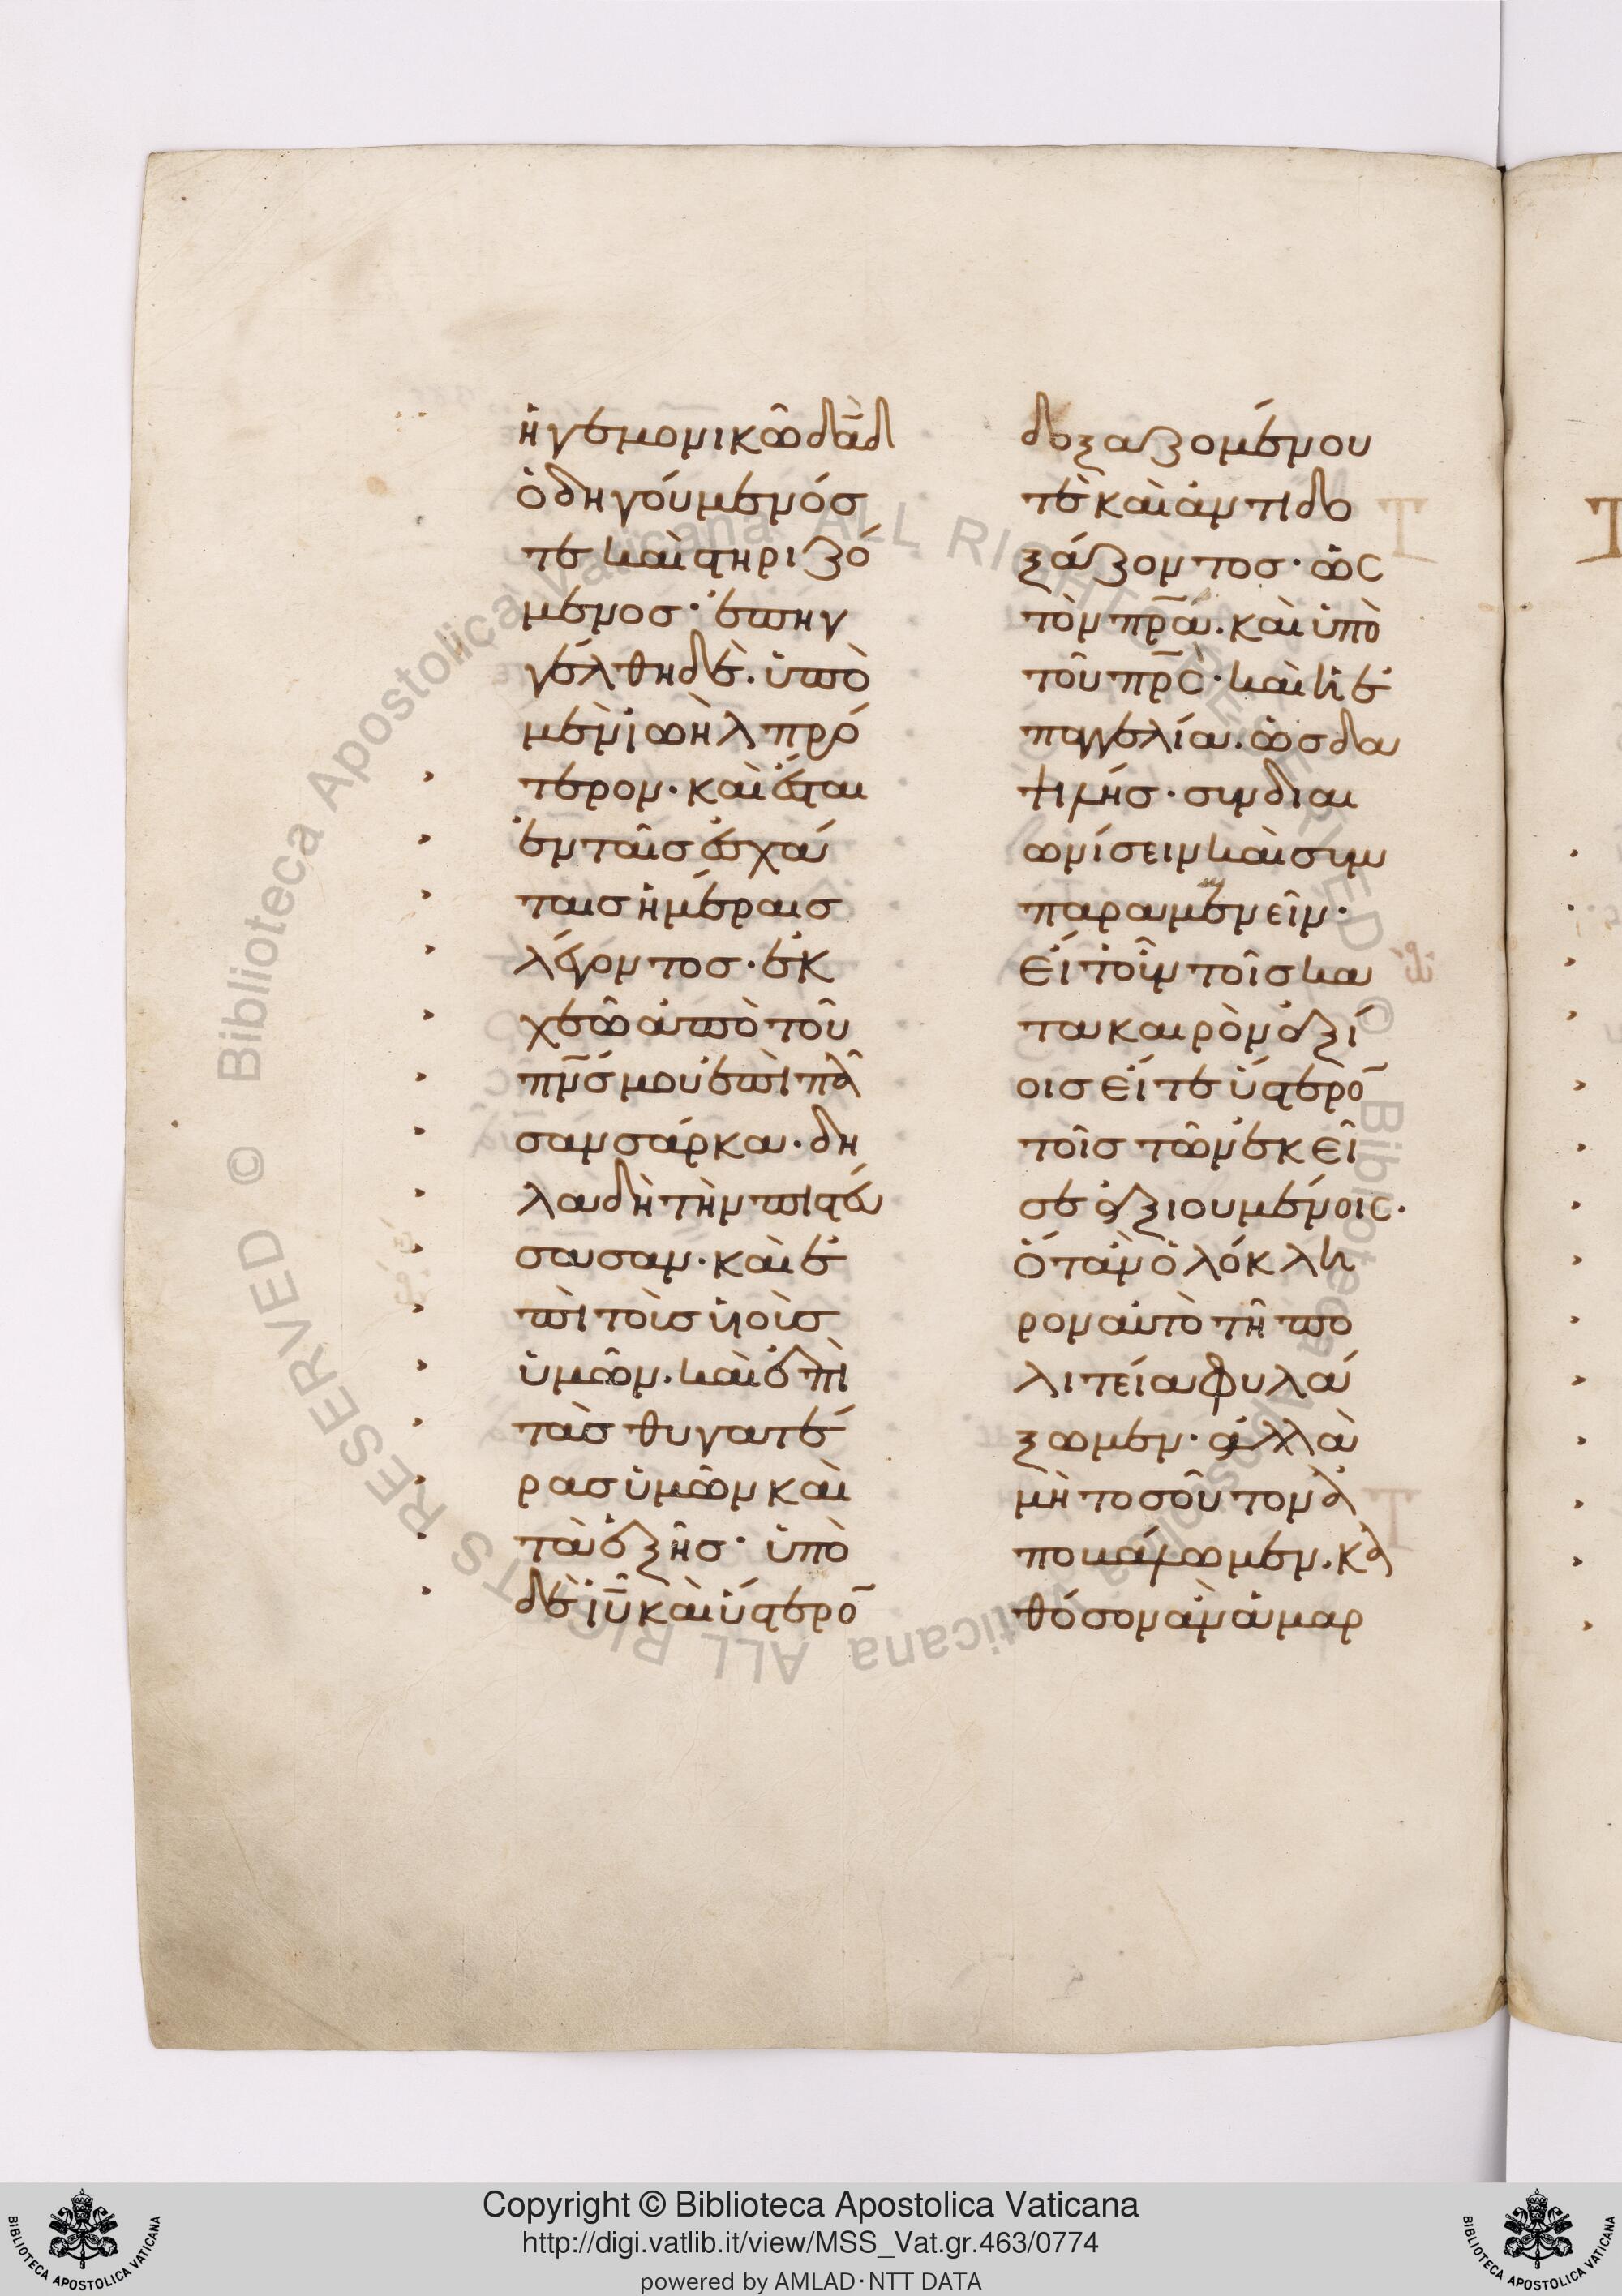 ἡγεμονικῶ δᾱδ
ὁδηγούμενόσ
τε καὶ στηριζό
μενοσ· ἐπηγ
γέλθη δὲ. ὑπὸ
μὲν ἰωὴλ πρό
τερον. καὶ ἔσται
ἐν ταῖσ ἐσχά
ταισ ἡμέραισ
λέγοντοσ. ἐκ
χεῶ ἀπὸ τοῦ
πν̅σ μου ἐπὶ πᾶ
σαν σάρκα. δη
λαδὴ τὴν πιστεύ
σασαν. καὶ ἐ
πὶ τοὺσ υἱοὺσ
ὑμῶν. καὶ ἐπὶ
τὰσ θυγατέ
ρασ ὑμῶν καὶ
τὰ ἑξῆσ· ὑπὸ
δὲ ἰ̅υ καὶ ὕστερο̅
δοξαζομένου
τὲ καὶ ἀντιδο
ξάζοντοσ· ὡσ
τὸν πρ̅α. καὶ ὑπὸ
τοῦ πρ̅σ. καὶ ἡ ἐ
παγγελία. ὡσ δα
ψιλήσ· συνδια
ωνίσειν καὶ συμ
παραμενεῖν.
εἴτ' οὖν τοῖσ κα
τα καιρὸν ἀξί
οισ εἴτε ὕστερο̅
τοῖσ τῶν ἐκεῖ
σε ἀξιουμένοισ.
ὅταν ὁλόκλη
ρον αὐτὸ τῆ πο
λιτεία φυλά
ξωμεν· ἀλλὰ
μὴ τοσοῦτον ἀ
ποκάμωμεν. κα
θόσον ἂν ἁμαρ
Copyright © Biblioteca Apostolica Vaticana
http://digi.vatlib.it/view/MSS_Vat.gr.463/0774
powered by AMLAD·NTT DATA
BIBLIOTECA APOSTOLICA VATICANA
BIBLIOTECA APOSTOLICA VATICANA
© Biblioteca Apostolica Vaticana ALL RIGHTS RESERVED
© Biblioteca Apostolica Vaticana ALL RIGHTS RESERVED